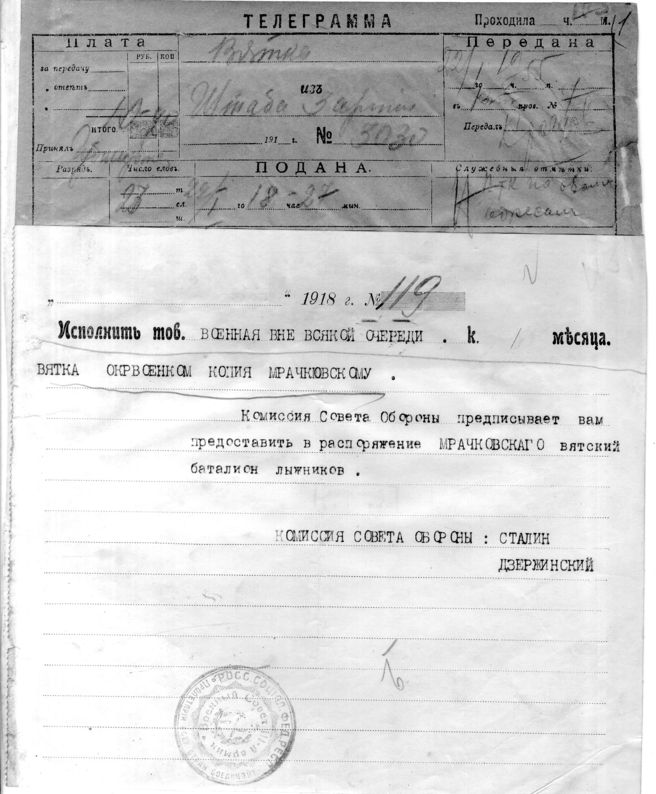 ТЕЛЕГРАММА
Проходила ч. м.
Плата
РУБ. КОП
за передачу
" отвѣтъ
"
ИТОГО
Принялъ
Вятка
изъ
Штаба 3 армии
191 г. № 5030
Передана
22/I 19 55
го ч. п.
въ пров. №
Передалъ
Разрядъ. Число словъ.
ПОДАНА.
Служебныя отмѣтки.
27
т.
сл.
22/I го 18-24 час мин.
адресам
„ " 1918 г. № 119
Исполнить тов. ВОЕННАЯ ВНЕ ВСЯКОЙ ОЧЕРЕДИ . к. мѣсяца.
ВЯТКА ОКРВОЕНКОМ КОПИЯ МРАЧКЮВСКОМУ .
Комиссия Совета Обороны предписывает вам
предоставить в распоряжение МРАЧКОВСКАГО вятский
баталион лыжников .
КОМИССИЯ СОВЕТА ОБОРОНЫ : СТАЛИН
ДЗЕРЖИНСКИЙ